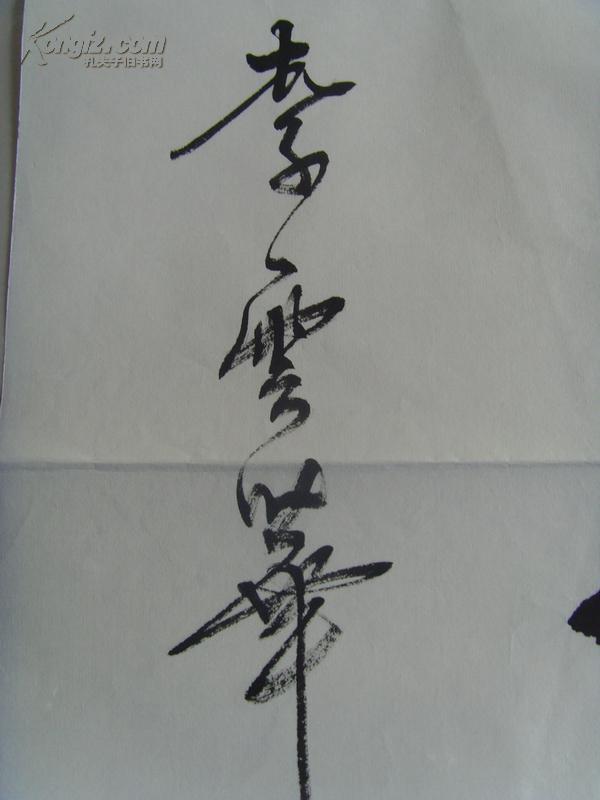 Kongfz.com
孔夫子旧书网
李雲華